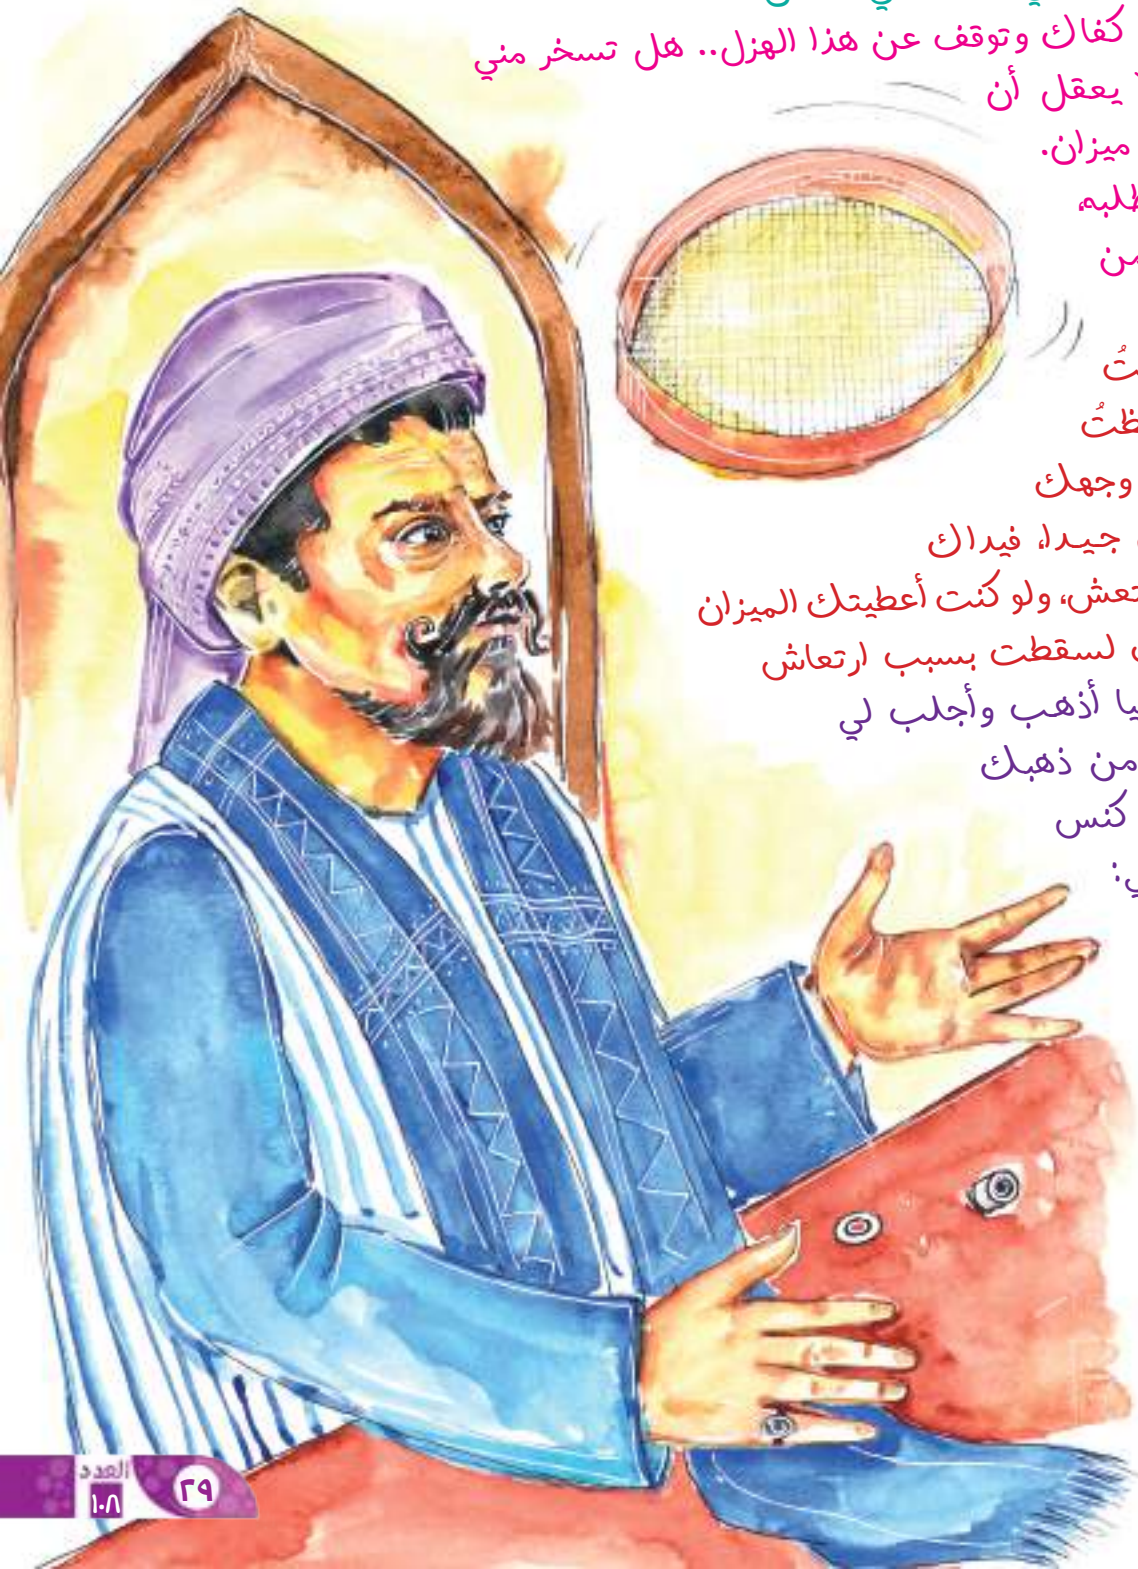 كفاك وتوقف عن هذا الهزل.. هل تسخر مني
يعقل أن
ميزان.
وجهك
جيدا، فيداك
ولو كنت أعطيتك الميزان
لسقطت بسبب ارتعاش
أذهب وأجلب لي
من ذهبك
كنس
العدد
١٠٨
٢٩